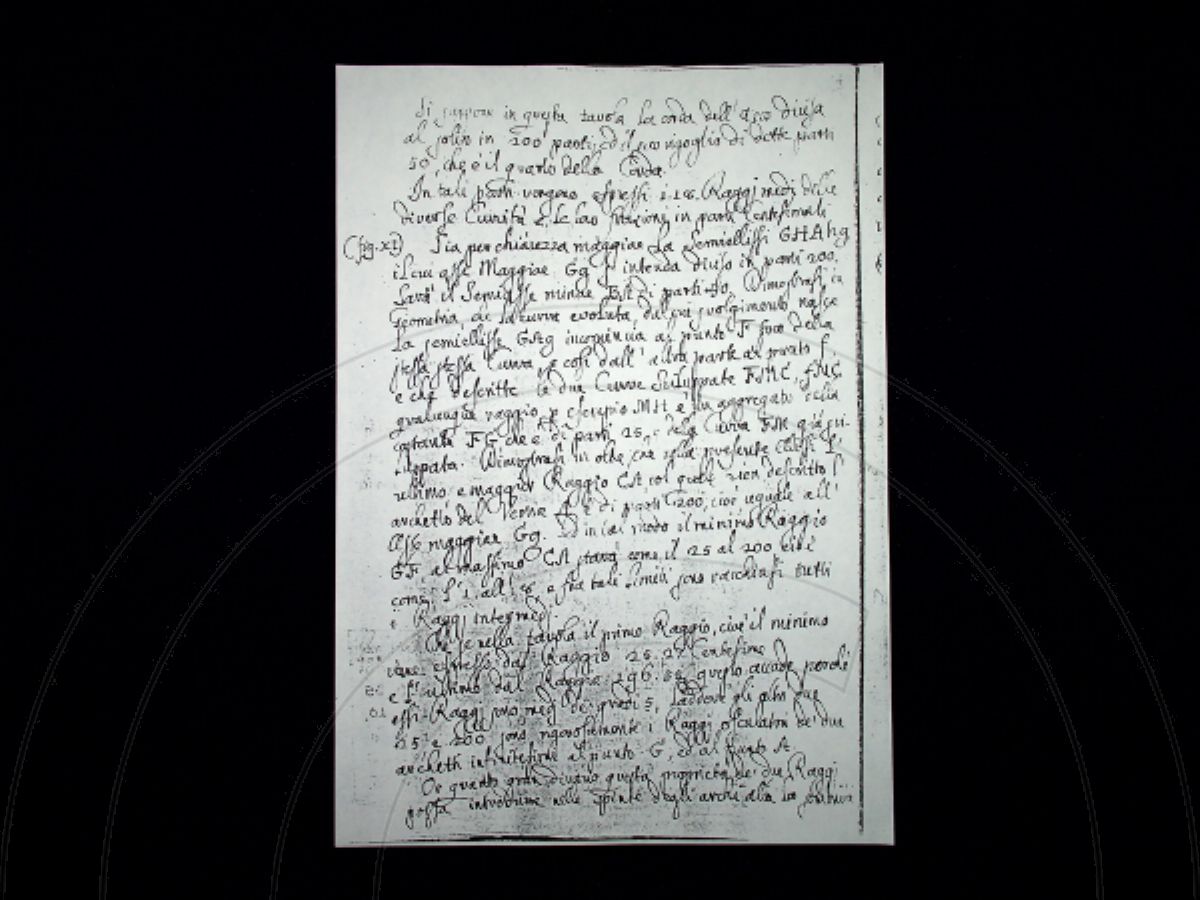 Si suppone in questa tavola la corda dell' Arco divisa
al solito in 200 parti, ed il suo rigoglio di dette parti
50, che è il quarto della Corda.
In tali parti vengono espressi i 18. Raggi medi delle
diverse Curvità e le loro frazione in parti Centesimali
(fig. XI) Sia per chiarezza maggiore la Semiellissi GHAhg
il cui asse Maggiore Gg s' intenda diviso in parti 200.
Sarà il Semiasse minore BA di parti 50. Dimostrasi in
Geometria, che la curva evoluta, dal cui svolgimento nasce
la semiellisse GAg incomincia al punto F foco della
stessa Curva, e così dall' altra parte al punto f.
e che descritte le due Curve Sviluppate FMC, fNC
qualunque raggio p esempio MH è un aggregato della
costante FG che è di parti 25, e della Curva FM già svi-
luppata. Dimostrasi in oltre, che nella presente Ellissi l'
ultimo e maggior Raggio CA col quale vien descritto l'
archetto del Vertice A è di parti 200, cioè uguale all'
Asse maggiore Gg. Ed in tal modo il minimo Raggio
GF, al massimo CA starà come il 25 al 200 cioè
come l' 1. all' 8, e fra tali limiti sono racchiusi tutti
i Raggi intermedj.
Che se nella tavola il primo Raggio, cioè il minimo
viene espresso dal Raggio 25.27 Centesime
e l' ultimo dal Raggio 196. questo accade perchè
essi Raggi sono medj de' gradi 5, laddove gli altri due
25 e 200 sono rigorosamente i Raggi osculatori de' due
archetti infinitesimi al punto G, ed al punto A.
Or quanto gran divario questa proprietà de' due Raggi
possa introdurre nelle spinte degli archi alla